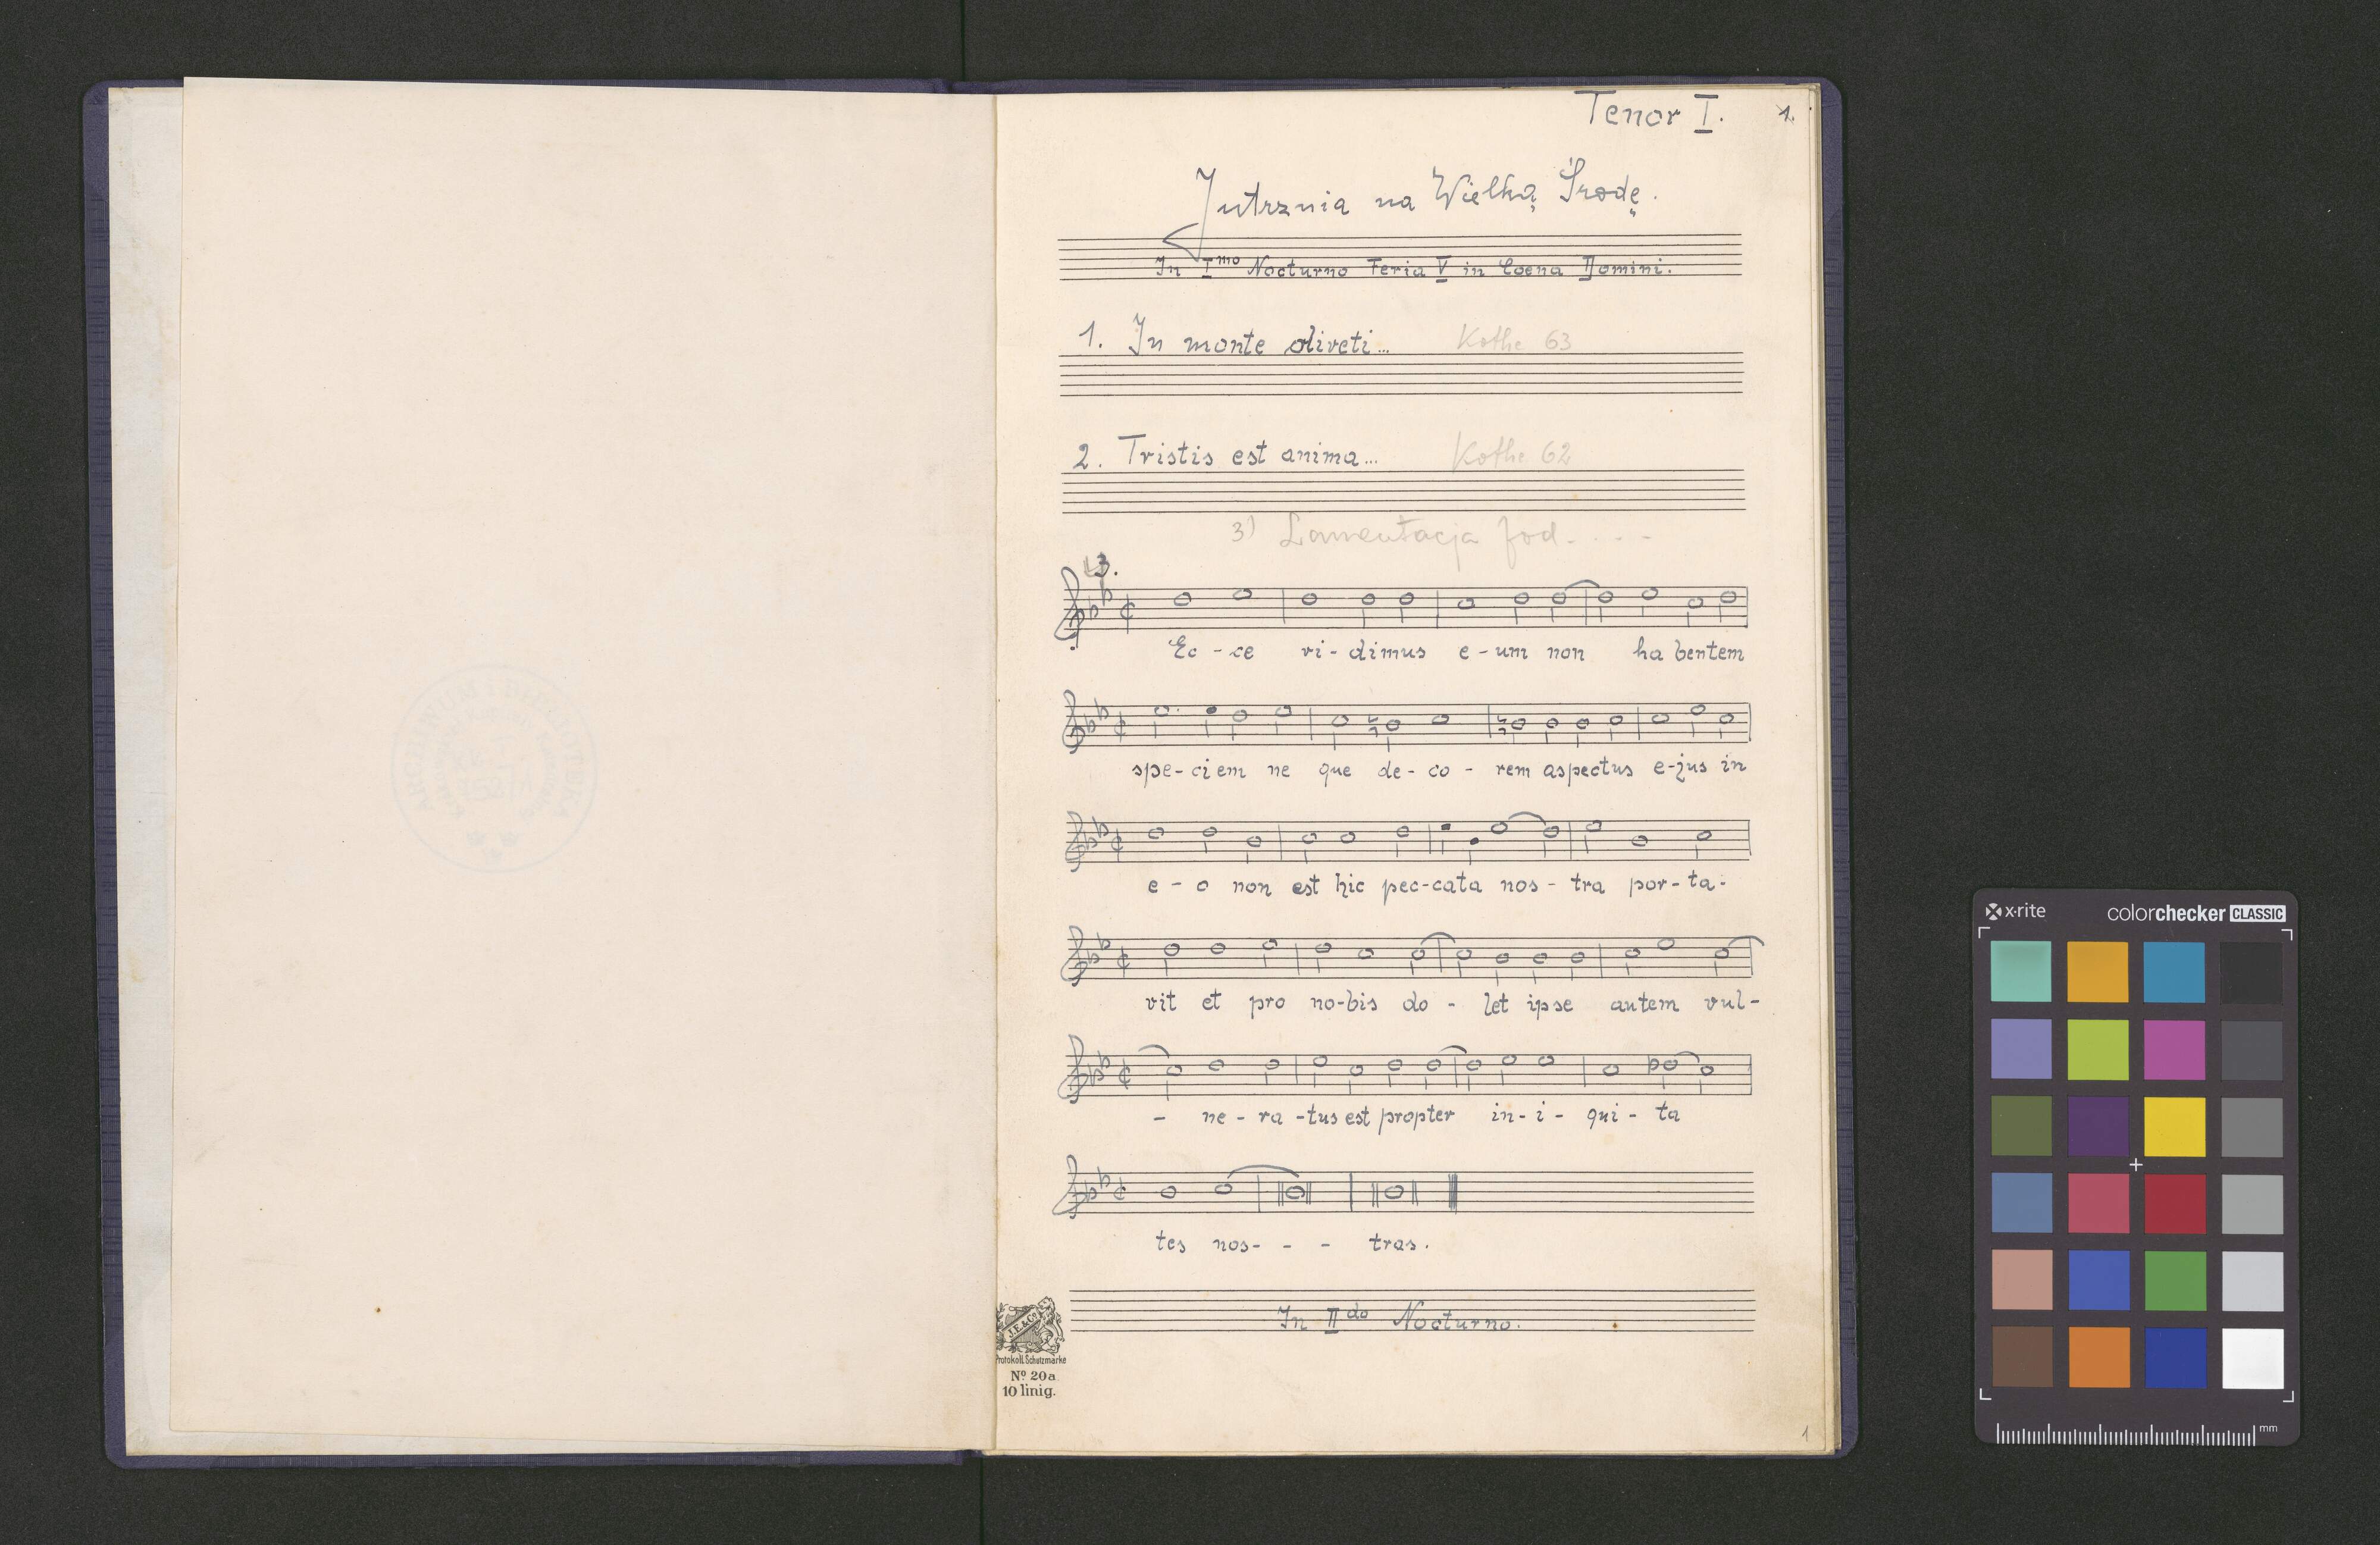 Tenor I.
1.
Jutrznia na Wielką Środę.
In I mo Nocturno Feria V in Coena Domini.
1. In monte oliveti... Kothe 63
2. Tristis est anima... Kothe 62
3) Lamentacja Jod. . . -
3.
Ec - ce vi - dimus e - um non ha bentem
spe - ciem ne que de - co - rem aspectus e - jus in
e - o non est hic pec - cata nos - tra por - ta -
vit et pro no - bis do - let ipse autem vul -
- ne - ra - tus est propter in - i - qui - ta
tes nos - - - tras.
In II do Nocturno.
J.E. & Co.
Protokoll. Schutzmarke
No. 20a
10 linig.
1
x-rite colorchecker CLASSIC
mm